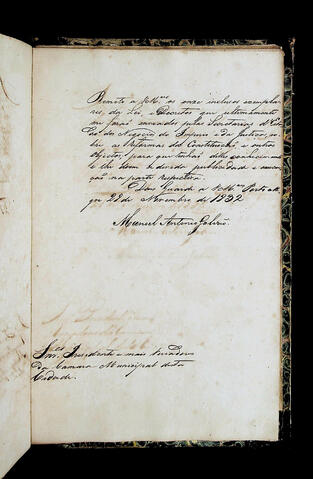 Remeto a VMces os onze inclusos exemplares
das Leis e Decretos que ultimamente
me forão enviados pelas Secretarias d'Estado
dos Negocios do Imperio e da Justiça, sobre
as Reformas da Constituição e outros
objectos, para que tenhão delles conhecimento
e lhe dem a devida publicidade e execução
na parte respectiva.
Deos Guarde a VMces Porto Alegre
28 de Novembro de 1832
Manoel Antonio Galvão
Snres Presidente e mais Vereadores
da Camara Municipal desta
Cidade.